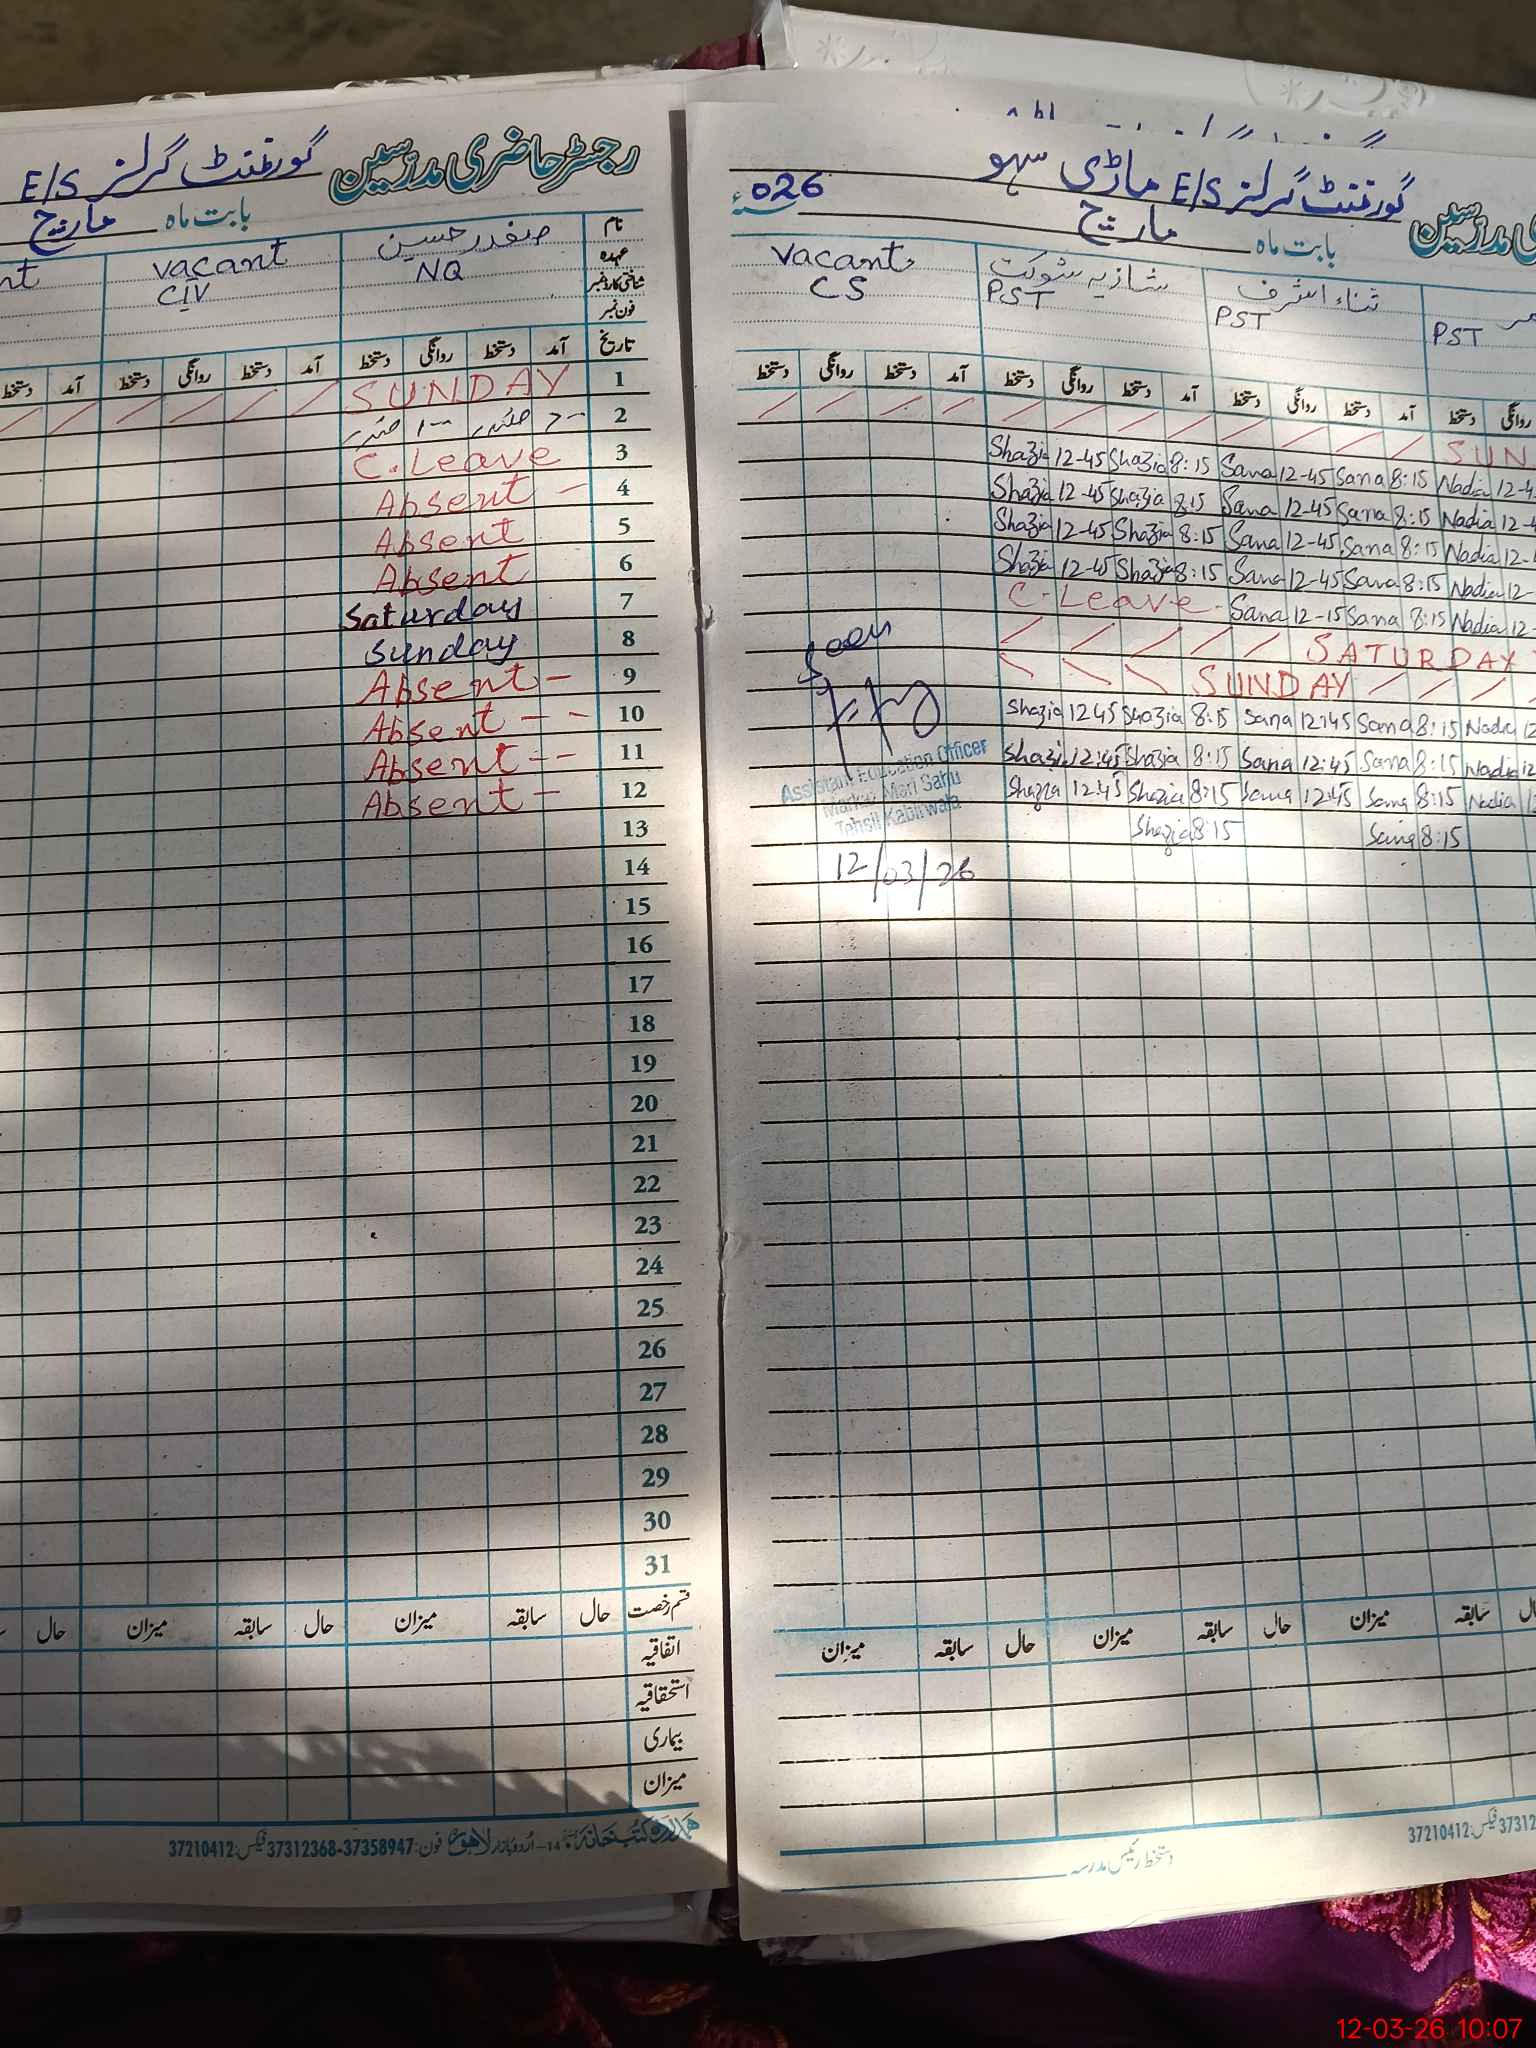 رجسٹر حاضری مدرسین گورنمنٹ گرلز E/S
بابت ماہ مارچ
نام صفدر حسین vacant
عہدہ NQ CIV
شناختی کارڈ نمبر
فون نمبر
تاریخ آمد دستخط روانگی دستخط آمد دستخط روانگی دستخط آمد دستخط
1 SUNDAY
2 صفدر صفدر
3 C. Leave
4 Absent -
5 Absent
6 Absent
7 Saturday
8 Sunday
9 Absent -
10 Absent - -
11 Absent - -
12 Absent -
13
14
15
16
17
18
19
20
21
22
23
24
25
26
27
28
29
30
31
قسم رخصت حال سابقہ میزان حال سابقہ میزان حال
اتفاقیہ
استحقاقیہ
بیماری
میزان
ہمدرد کتب خانہ 14-اردو بازار لاہور فون: 37312368-37358947 فیکس: 37210412
گورنمنٹ گرلز E/S ماڑی سہو
بابت ماہ مارچ 026
PST ثناء اشرف شازیہ شوکت vacant
PST PST CS
روانگی دستخط آمد دستخط روانگی دستخط آمد دستخط روانگی دستخط آمد دستخط روانگی دستخط
SUN
Shazia 12-45 Shazia 8:15 Sana 12-45 Sana 8:15 Nadia 12-4
Shazia 12-45 Shazia 8:15 Sana 12-45 Sana 8:15 Nadia 12-4
Shazia 12-45 Shazia 8:15 Sana 12-45 Sana 8:15 Nadia 12-
Shazia 12-45 Shazia 8:15 Sana 12-45 Sana 8:15 Nadia 12-
C. Leave. Sana 12-15 Sana 8:15 Nadia 12-
SATURDAY
SUNDAY
Shazia 12 45 Shazia 8:15 Sana 12:45 Sana 8:15 Nadia 12
Shazia 12:45 Shazia 8:15 Sana 12:45 Sana 8:15 Nadia 12
Shazia 12:45 Shazia 8:15 Sana 12:45 Sana 8:15 Nadia
Shazia 8:15 Sana 8:15
Seen
Assistant Education Officer
Markaz Mari Sahu
Tehsil Kabirwala
12/03/26
حال سابقہ میزان حال سابقہ میزان حال سابقہ میزان
37210412 :فیکس 37312
دستخط رئیس مدرسہ
12-03-26 10:07